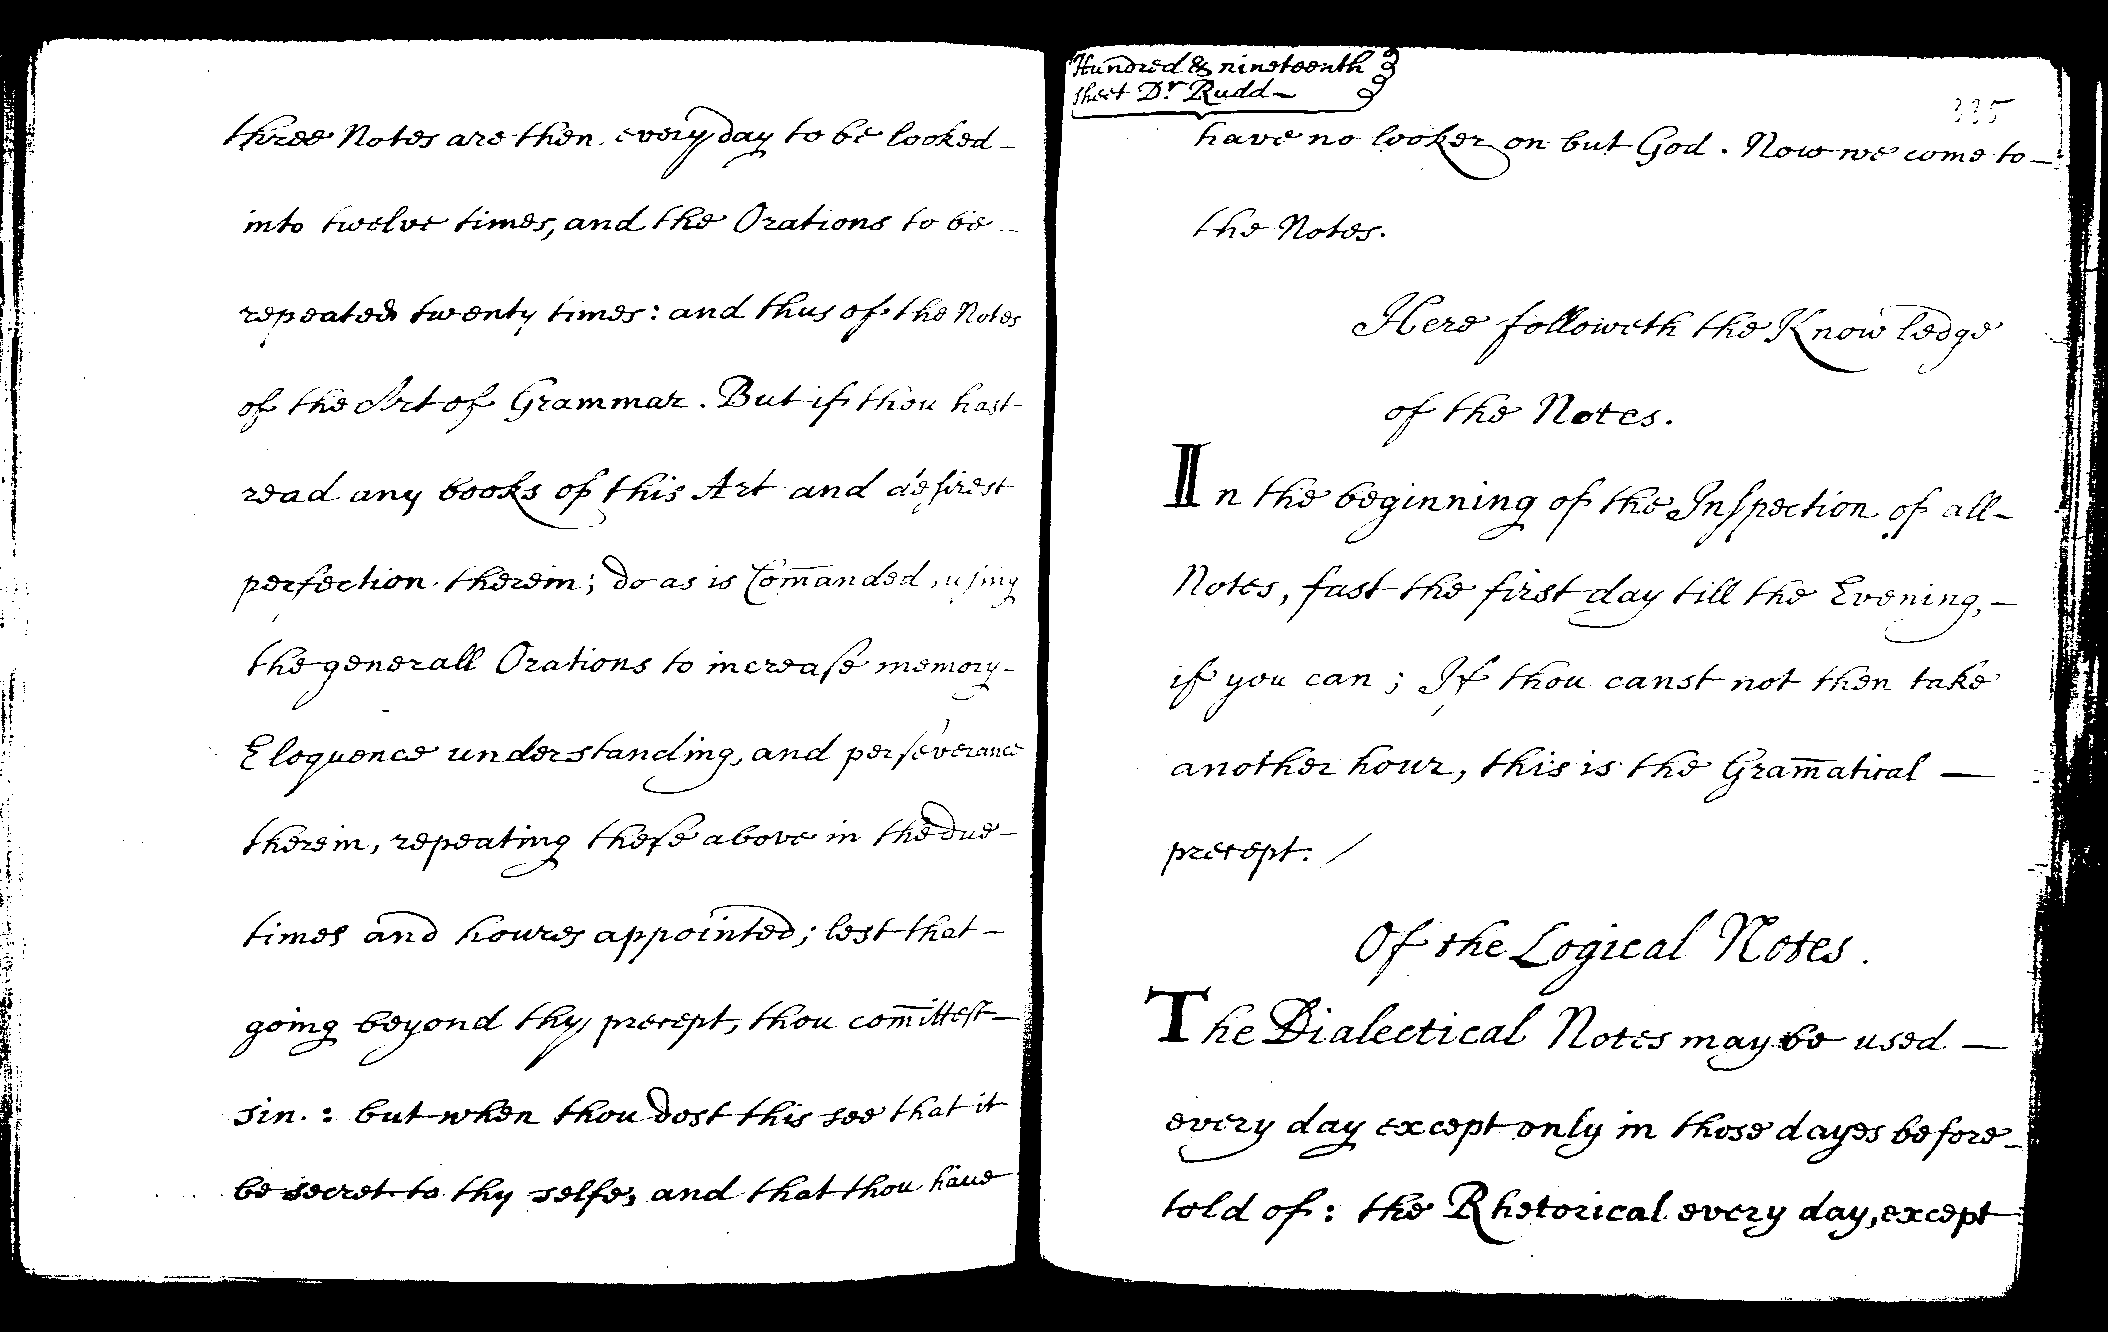 three Notes are then every day to be looked-
into twelve times, and the Orations to be -
repeated twenty times: and thus of the Notes
of the Art of Grammar. But if thou hast-
read any books of this Art and desirest
perfection therein; do as is Com̄anded, using
the generall Orations to increase memory-
Eloquence understanding, and perseverance
therein, repeating these above in the due-
times and houres appointed; lest that-
going beyond thy precept, thou com̄ittest-
sin.: but when thou dost this see that it
be secret to thy selfe, and that thou have
Hundred & nineteenth
sheet Dr Rudd-
335
have no looker on but God. Now we come to-
the Notes.
Here followeth the Knowledge
of the Notes.
In the beginning of the Inspection of all-
Notes, fast the first day till the Evening,-
if you can; If thou canst not then take
another hour, this is the Gram̄atical —
precept. /
Of the Logical Notes.
The Dialectical Notes may be used —
every day except only in those dayes before-
told of: the Rhetorical every day, except